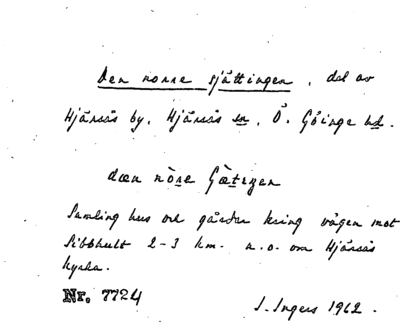 Den norre sjättingen, del av
Hjärsås by, Hjärsås sn, Ö. Göinge hd.
dæn nòre
Samling hus och gårdar kring vägen mot
Sibbhult 2-3 km. n.o. om Hjärsås
kyrka.
Nr. 7724
I. Ingers 1962.